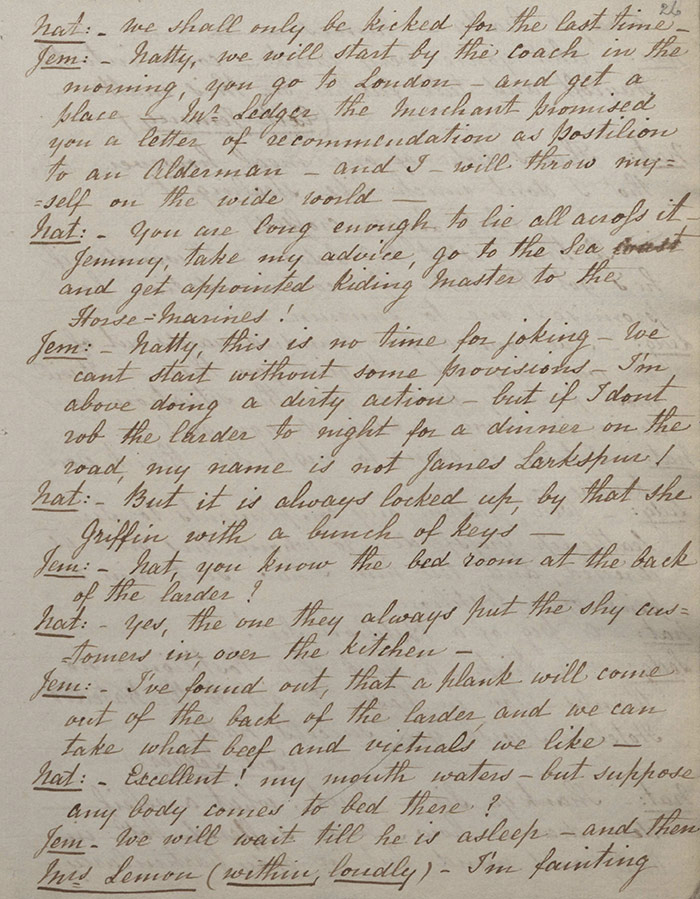 26
Nat: - we shall only be kicked for the last time -
Jem: - Natty, we will start by the coach in the
morning, you go to London - and get a
place - Mr. Ledger the Merchant promised
you a letter of recommendation as postilion
to an Alderman - and I - will throw my=
=self on the wide world -
Nat: - You are long enough to lie all across it
Jemmy, take my advice, go to the Sea
and get appointed Riding Master to the
Horse=Marines!
Jem: - Natty, this is no time for joking - We
cant start without some provisions - I'm
above doing a dirty action - but if I dont
rob the larder to night for a dinner on the
road, my name is not James Larkspur!
Nat: - But it is always locked up, by that she
Griffin with a bunch of keys -
Jem: - Nat, you know the bed room at the back
of the larder?
Nat: - Yes, the one they always put the shy cus=
=tomers in, over the kitchen -
Jem: - I've found out, that a plank will come
out of the back of the larder, and we can
take what beef and victuals we like -
Nat: - Excellent! my mouth waters - but suppose
any body comes to bed there?
Jem - We will wait till he is asleep - and then
Mrs Lemon (within, loudly) - I'm fainting